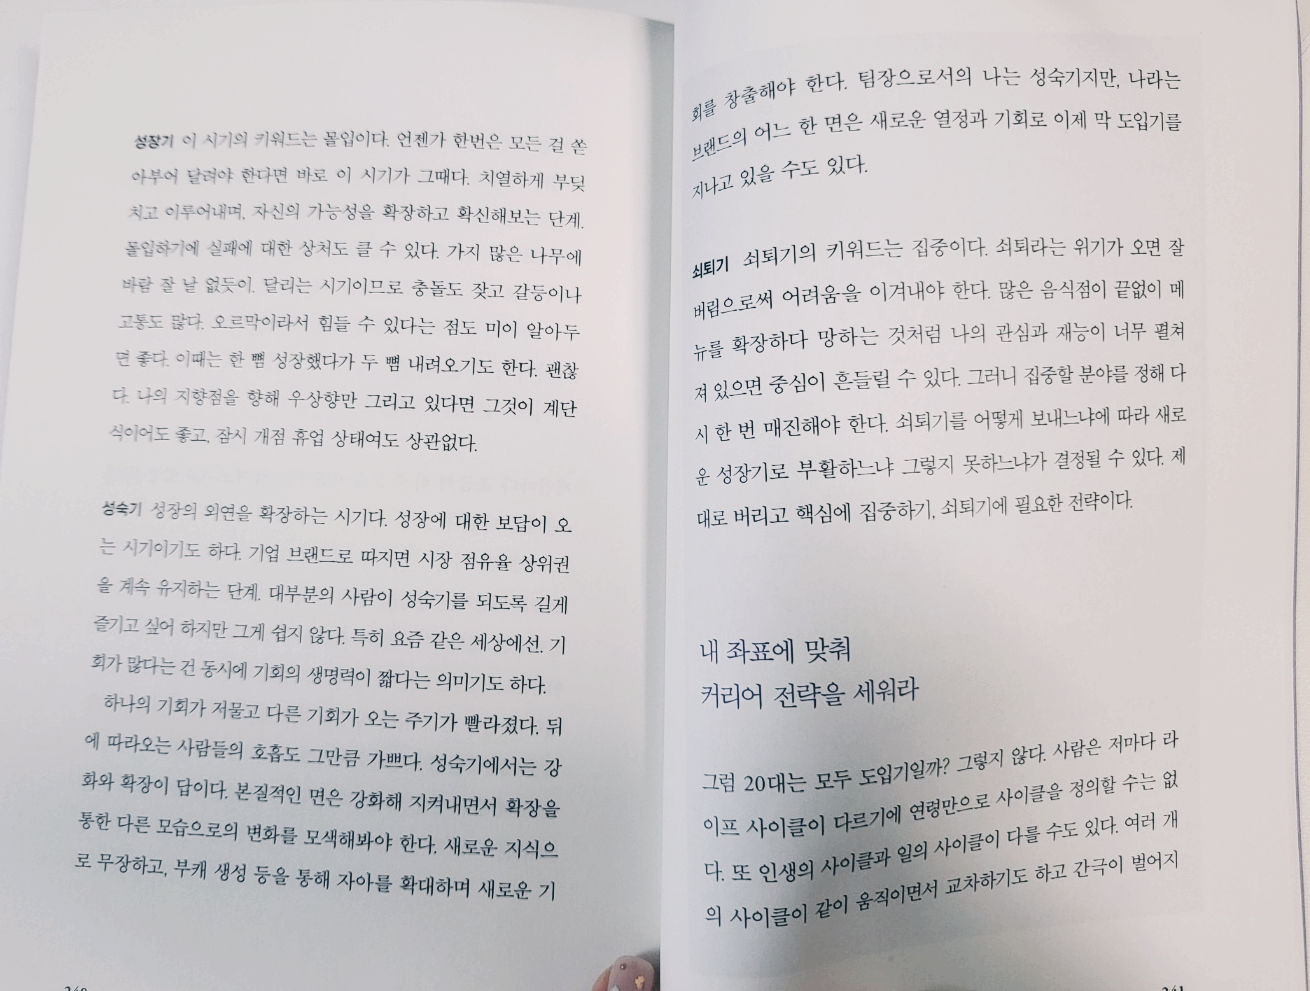 성장기 이 시기의 키워드는 몰입이다. 언젠가 한번은 모든 걸 쏟
아부어 달려야 한다면 바로 이 시기가 그때다. 치열하게 부딪
치고 이루어내며, 자신의 가능성을 확장하고 확신해보는 단계.
몰입하기에 실패에 대한 상처도 클 수 있다. 가지 많은 나무에
바람 잘 날 없듯이. 달리는 시기이므로 충돌도 잦고 갈등이나
고통도 많다. 오르막이라서 힘들 수 있다는 점도 미이 알아두
면 좋다. 이때는 한 뼘 성장했다가 두 뼘 내려오기도 한다. 괜찮
다. 나의 지향점을 향해 우상향만 그리고 있다면 그것이 계단
식이어도 좋고, 잠시 개점 휴업 상태여도 상관없다.
성숙기 성장의 외연을 확장하는 시기다. 성장에 대한 보답이 오
는 시기이기도 하다. 기업 브랜드로 따지면 시장 점유율 상위권
을 계속 유지하는 단계. 대부분의 사람이 성숙기를 되도록 길게
즐기고 싶어 하지만 그게 쉽지 않다. 특히 요즘 같은 세상에선. 기
회가 많다는 건 동시에 기회의 생명력이 짧다는 의미기도 하다.
하나의 기회가 저물고 다른 기회가 오는 주기가 빨라졌다. 뒤
에 따라오는 사람들의 호흡도 그만큼 가쁘다. 성숙기에서는 강
화와 확장이 답이다. 본질적인 면은 강화해 지켜내면서 확장을
통한 다른 모습으로의 변화를 모색해봐야 한다. 새로운 지식으
로 무장하고, 부캐 생성 등을 통해 자아를 확대하며 새로운 기
회를 창출해야 한다. 팀장으로서의 나는 성숙기지만, 나라는
브랜드의 어느 한 면은 새로운 열정과 기회로 이제 막 도입기를
지나고 있을 수도 있다.
쇠퇴기 쇠퇴기의 키워드는 집중이다. 쇠퇴라는 위기가 오면 잘
버림으로써 어려움을 이겨내야 한다. 많은 음식점이 끝없이 메
뉴를 확장하다 망하는 것처럼 나의 관심과 재능이 너무 펼쳐
져 있으면 중심이 흔들릴 수 있다. 그러니 집중할 분야를 정해 다
시 한 번 매진해야 한다. 쇠퇴기를 어떻게 보내느냐에 따라 새로
운 성장기로 부활하느냐 그렇지 못하느냐가 결정될 수 있다. 제
대로 버리고 핵심에 집중하기, 쇠퇴기에 필요한 전략이다.
내 좌표에 맞춰
커리어 전략을 세워라
그럼 20대는 모두 도입기일까? 그렇지 않다. 사람은 저마다 라
이프 사이클이 다르기에 연령만으로 사이클을 정의할 수는 없
다. 또 인생의 사이클과 일의 사이클이 다를 수도 있다. 여러 개
의 사이클이 같이 움직이면서 교차하기도 하고 간극이 벌어지